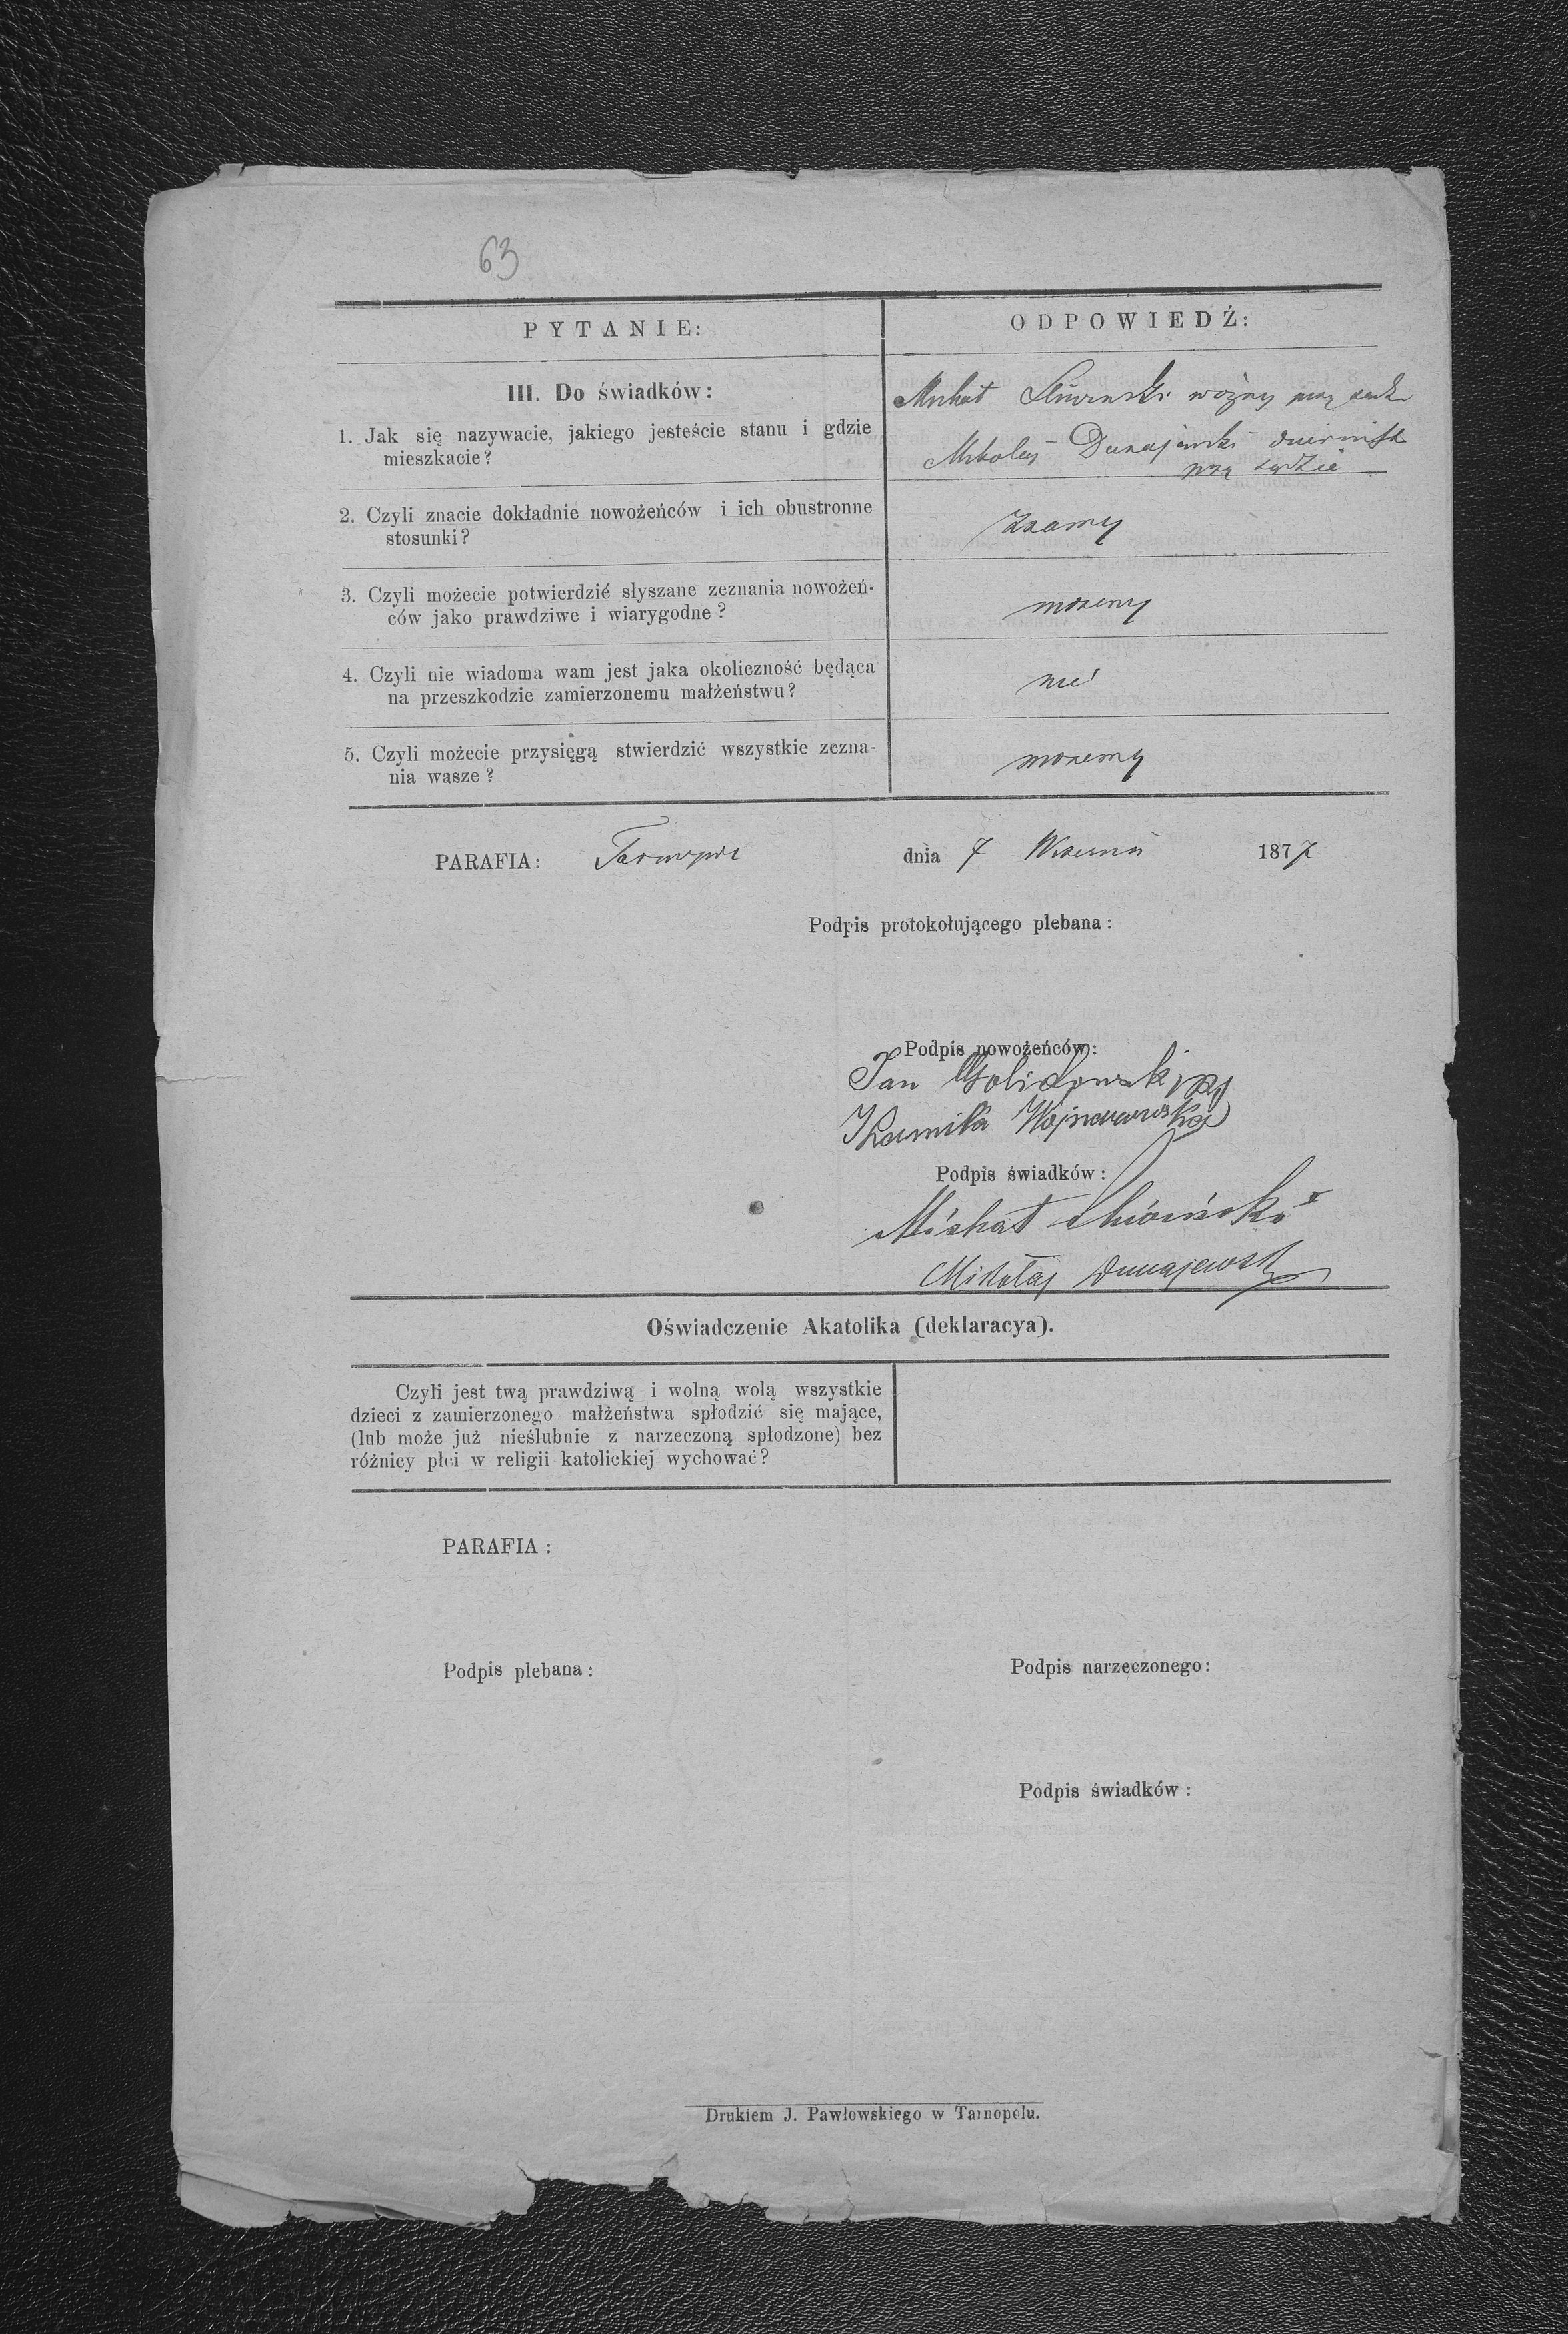 63
PYTANIE:
ODPOWIEDŹ:
III. Do świadków:
1. Jak się nazywacie, jakiego jesteście stanu i gdzie
mieszkacie?
Michał woźny przy
Mikołaj Dunajewski
przy sądzie
2. Czyli znacie dokładnie nowożeńców i ich obustronne
stosunki?
znamy
3. Czyli możecie potwierdzić słyszane zeznania nowożeń-
ców jako prawdziwe i wiarygodne?
możemy
4. Czyli nie wiadoma wam jest jaka okoliczność będąca
na przeszkodzie zamierzonemu małżeństwu?
nie
5. Czyli możecie przysięgą stwierdzić wszystkie zezna-
nia wasze?
możemy
PARAFIA: Tarnopol dnia 7 1877
Podpis protokołującego plebana:
Podpis nowożeńców:
Jan
Kamila
Podpis świadków:
Michał
Mikołaj Dunajewski
Oświadczenie Akatolika (deklaracya).
Czyli jest twą prawdziwą i wolną wolą wszystkie
dzieci z zamierzonego małżeństwa spłodzić się mające,
(lub może już nieślubnie z narzeczoną spłodzone) bez
różnicy płci w religii katolickiej wychować?
PARAFIA:
Podpis plebana:
Podpis narzeczonego:
Podpis świadków:
Drukiem J. Pawłowskiego w Tarnopolu.